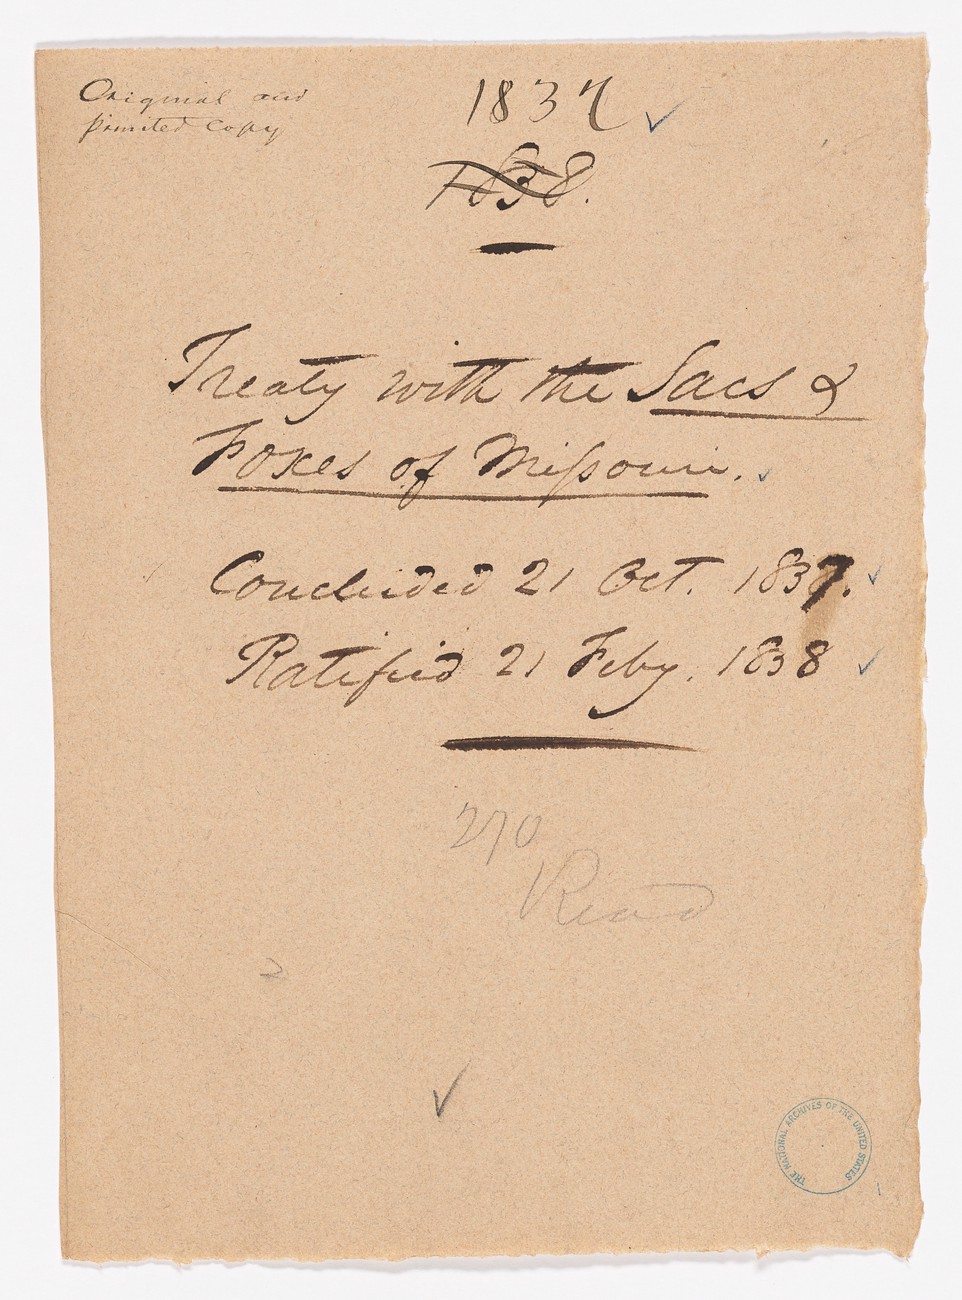 Original and
printed copy
1837
1838.
Treaty with the Sacs &
Foxes of Missouri.
Concluded 21 Oct. 1837.
Ratified 21 Feby. 1838
270
Read
THE NATIONAL ARCHIVES OF THE UNITED STATES